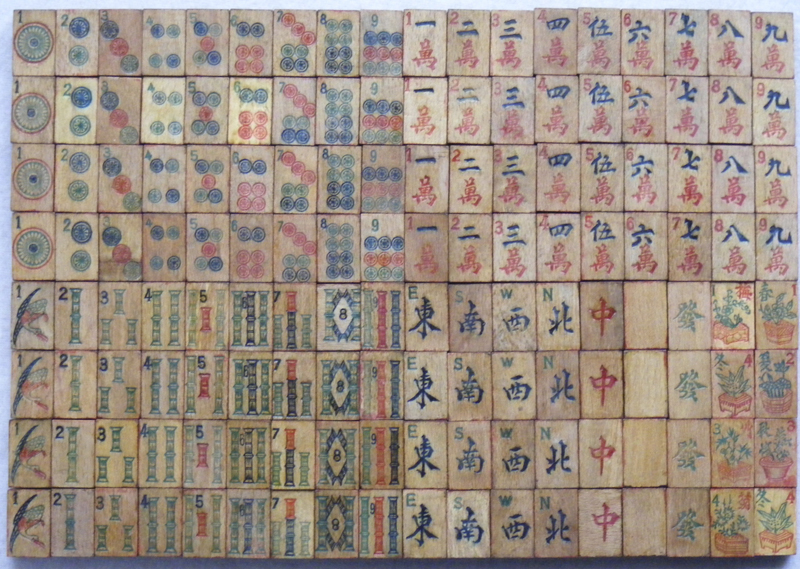 1 2 3 4 5 6 7 8 9 1 2 3 4 5 6 7 8 9
一 二 三 四 伍 六 七 八 九
萬 萬 萬 萬 萬 萬 萬 萬 萬
1 2 3 4 5 6 7 8 9 1 2 3 4 5 6 7 8 9
一 二 三 四 伍 六 七 八 九
萬 萬 萬 萬 萬 萬 萬 萬 萬
1 2 3 4 5 6 7 8 9 1 2 3 4 5 6 7 8 9
一 二 三 四 伍 六 七 八 九
萬 萬 萬 萬 萬 萬 萬 萬 萬
1 2 3 4 5 6 7 8 9 1 2 3 4 5 6 7 8 9
一 二 三 四 伍 六 七 八 九
萬 萬 萬 萬 萬 萬 萬 萬 萬
1 2 3 4 5 6 7 8 9 E S W N 梅 春 1
東 南 西 北 中 發
1 2 3 4 5 6 7 8 9 E S W N 冬 4 夏 2
東 南 西 北 中 發
1 2 3 4 5 6 7 8 9 E S W N 3 秋 3
東 南 西 北 中 發
1 2 3 4 5 6 7 8 9 E S W N 4 冬 4
東 南 西 北 中 發